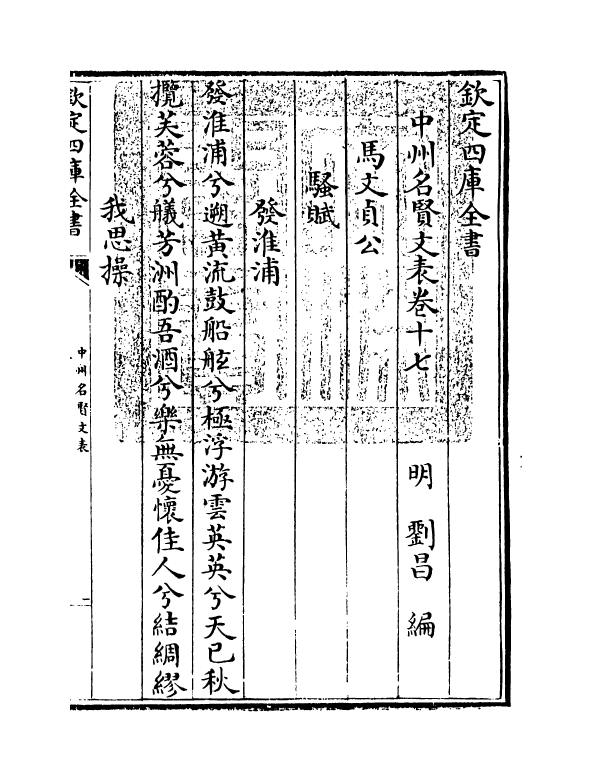 欽定四庫全書
中州名賢文表卷十七
明劉昌編
馬文貞公
騷賦
發淮浦
發淮浦兮遡黃流鼓船舷兮極浮游雲英英兮天已秋
攬芙蓉兮艤芳洲酌吾酒兮樂無憂懷佳人兮結綢繆
我思操
欽定四庫全書
中州名賢文表